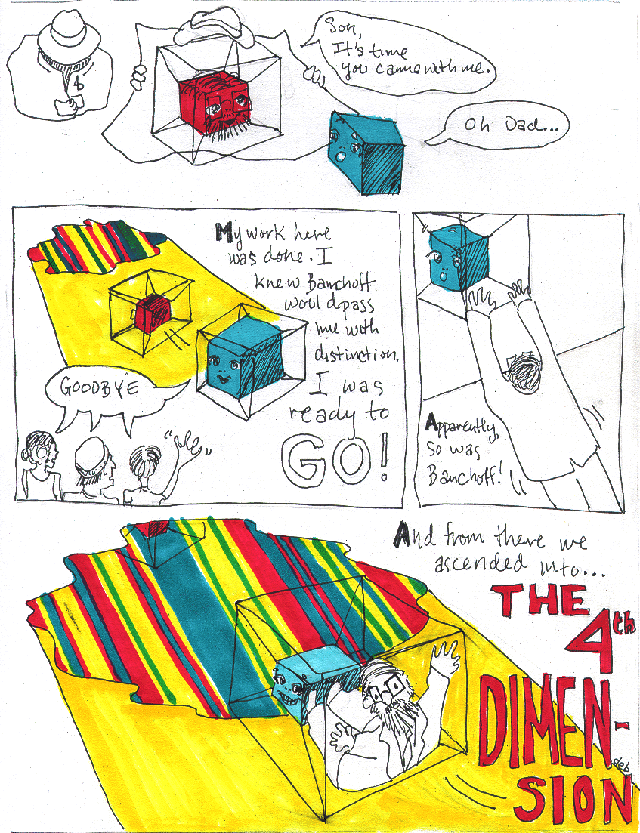 Son,
It's time
you came with me.
Oh Dad...
My work here
was done. I
knew Banchoff
would pass
me with
distinction.
I was
ready to
GO!
GOODBYE
Apparently,
so was
Banchoff!
And from there we
ascended into...
THE
4th
DIMEN-
SION
deb